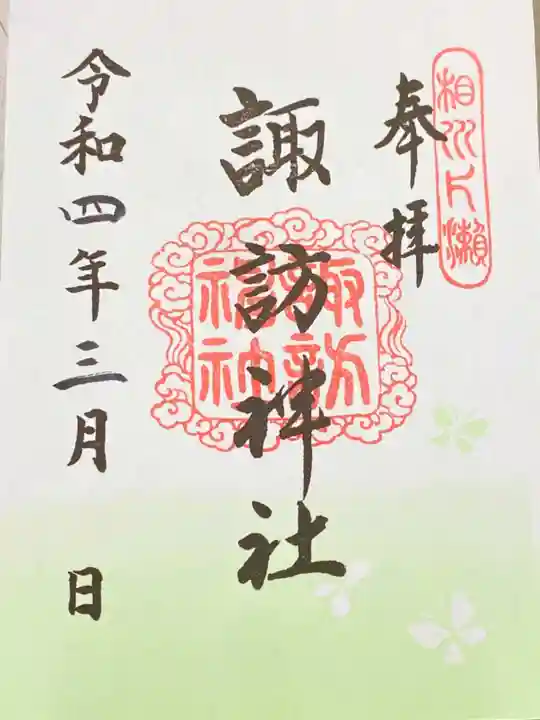 相州片瀬
奉拝
諏訪神社
諏訪神社
令和四年三月 日